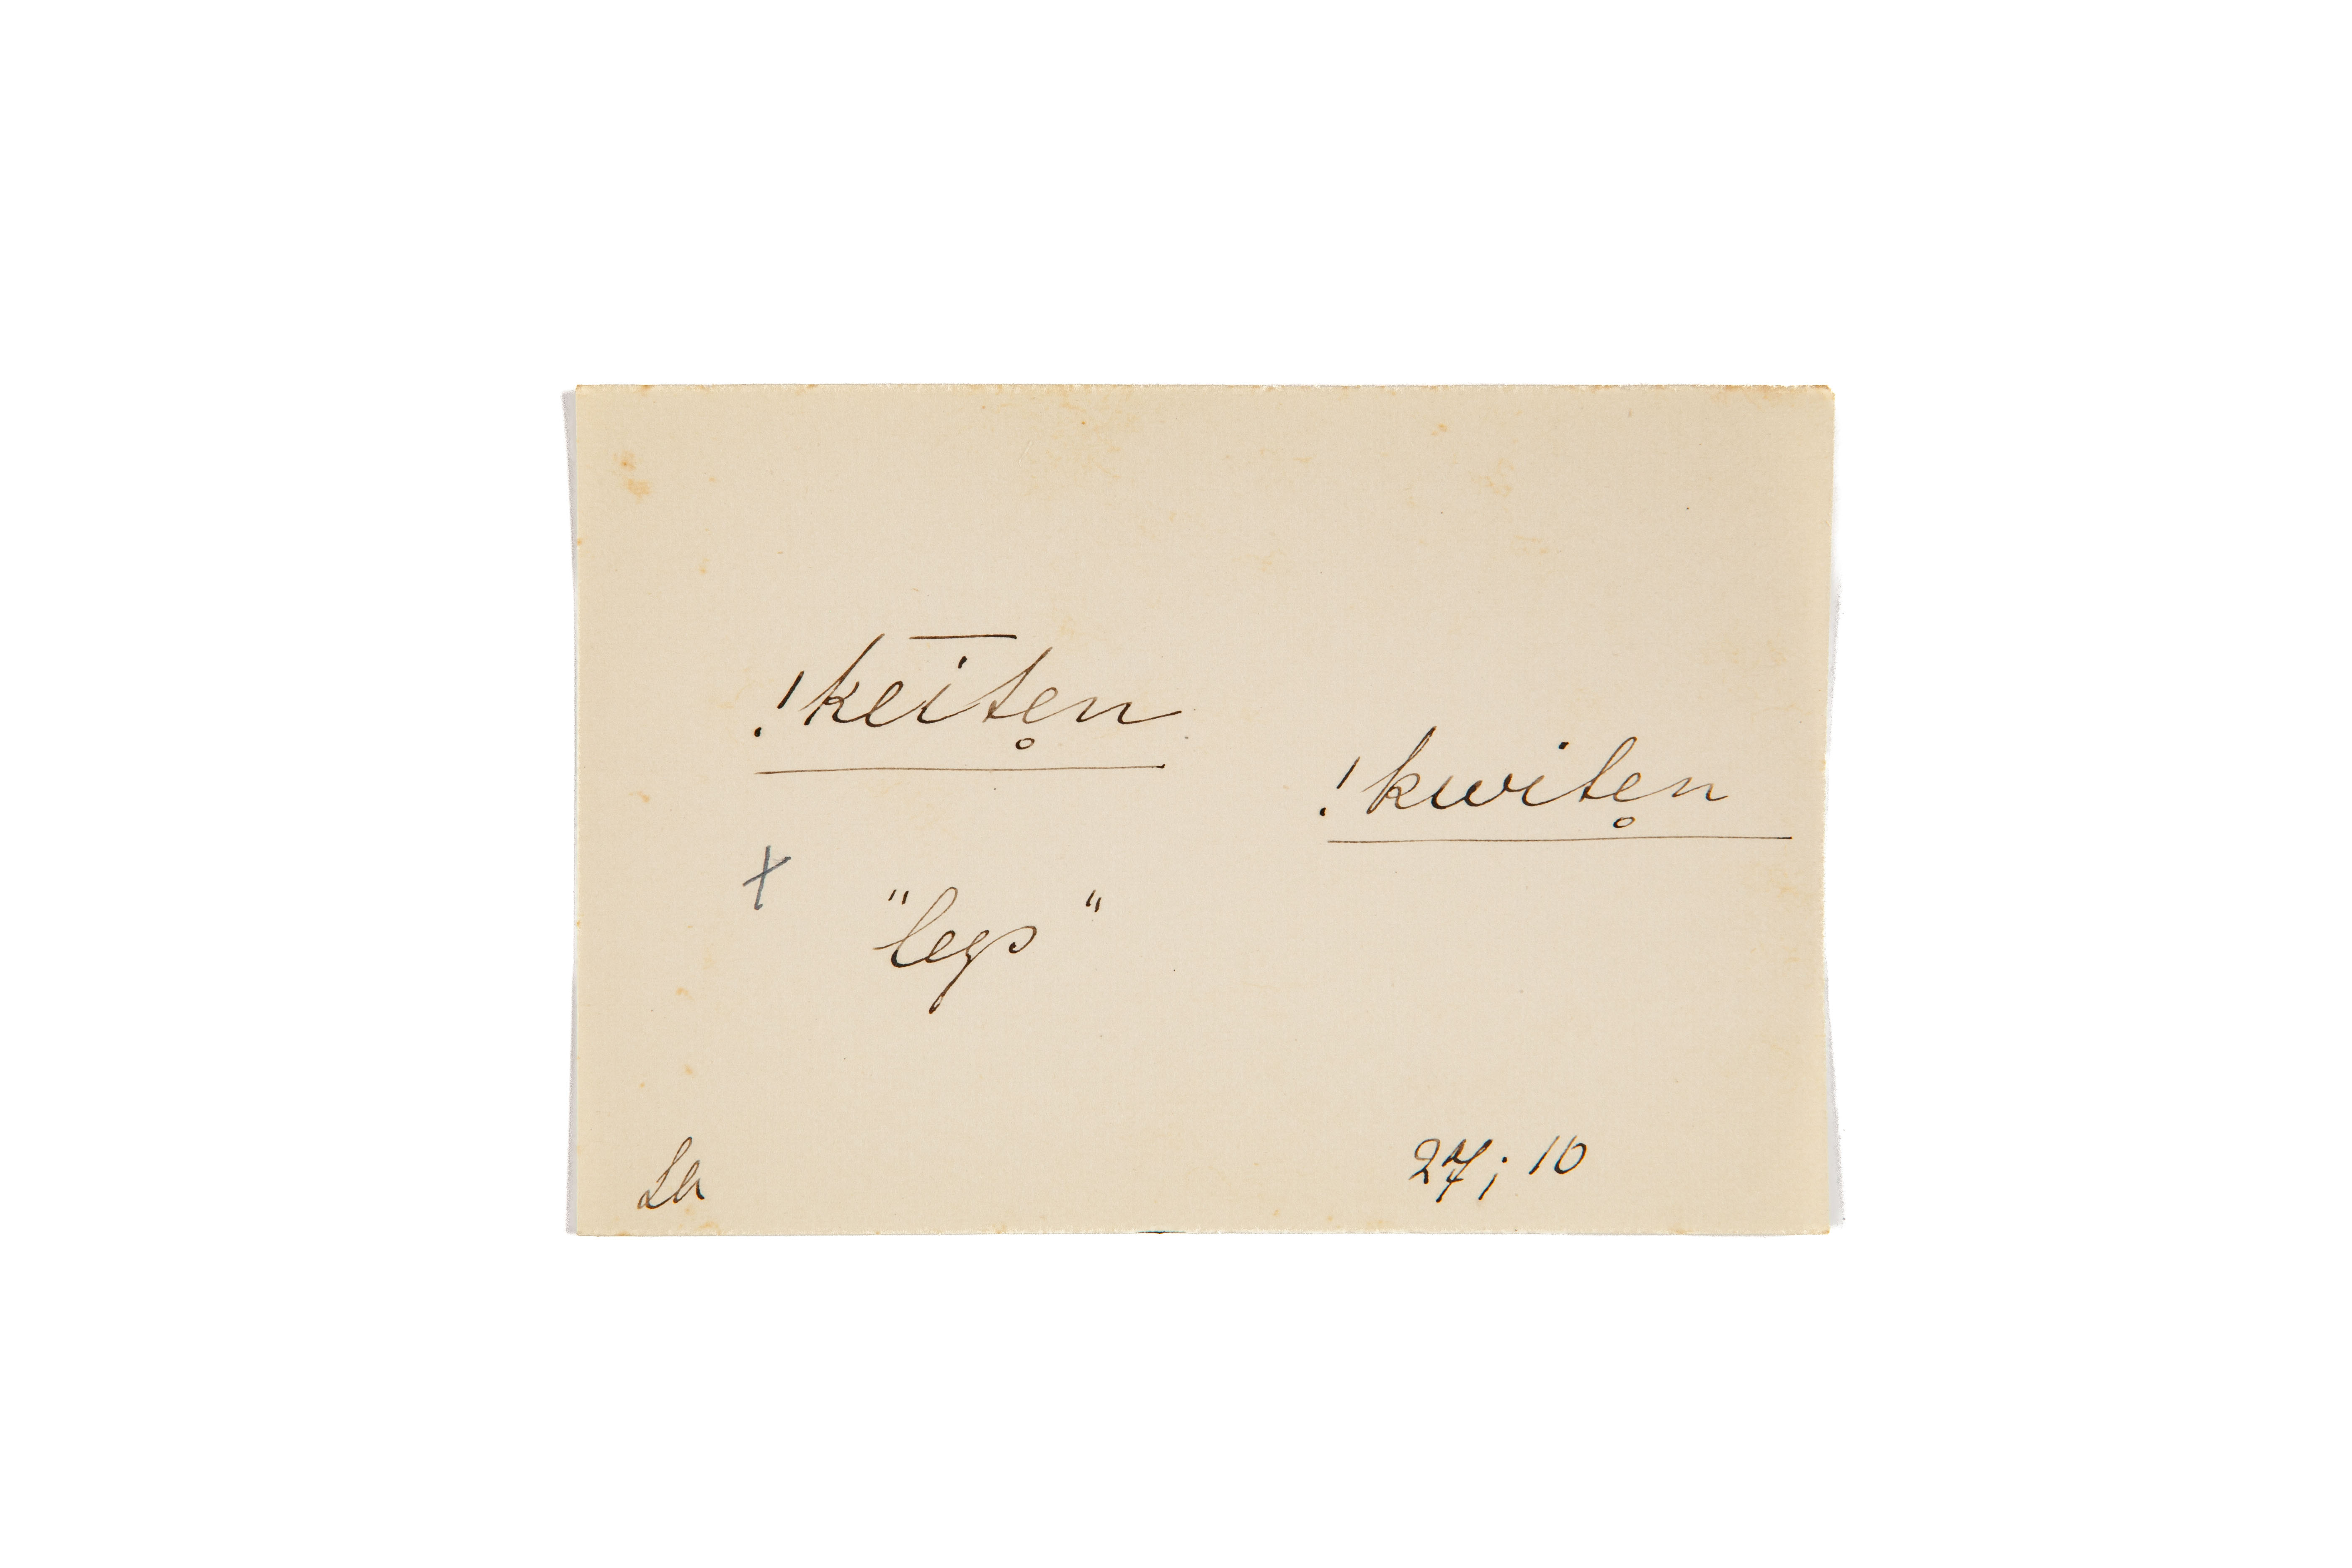 !kei̅te̥n
!kwite̥n
+ "legs"
27; 10